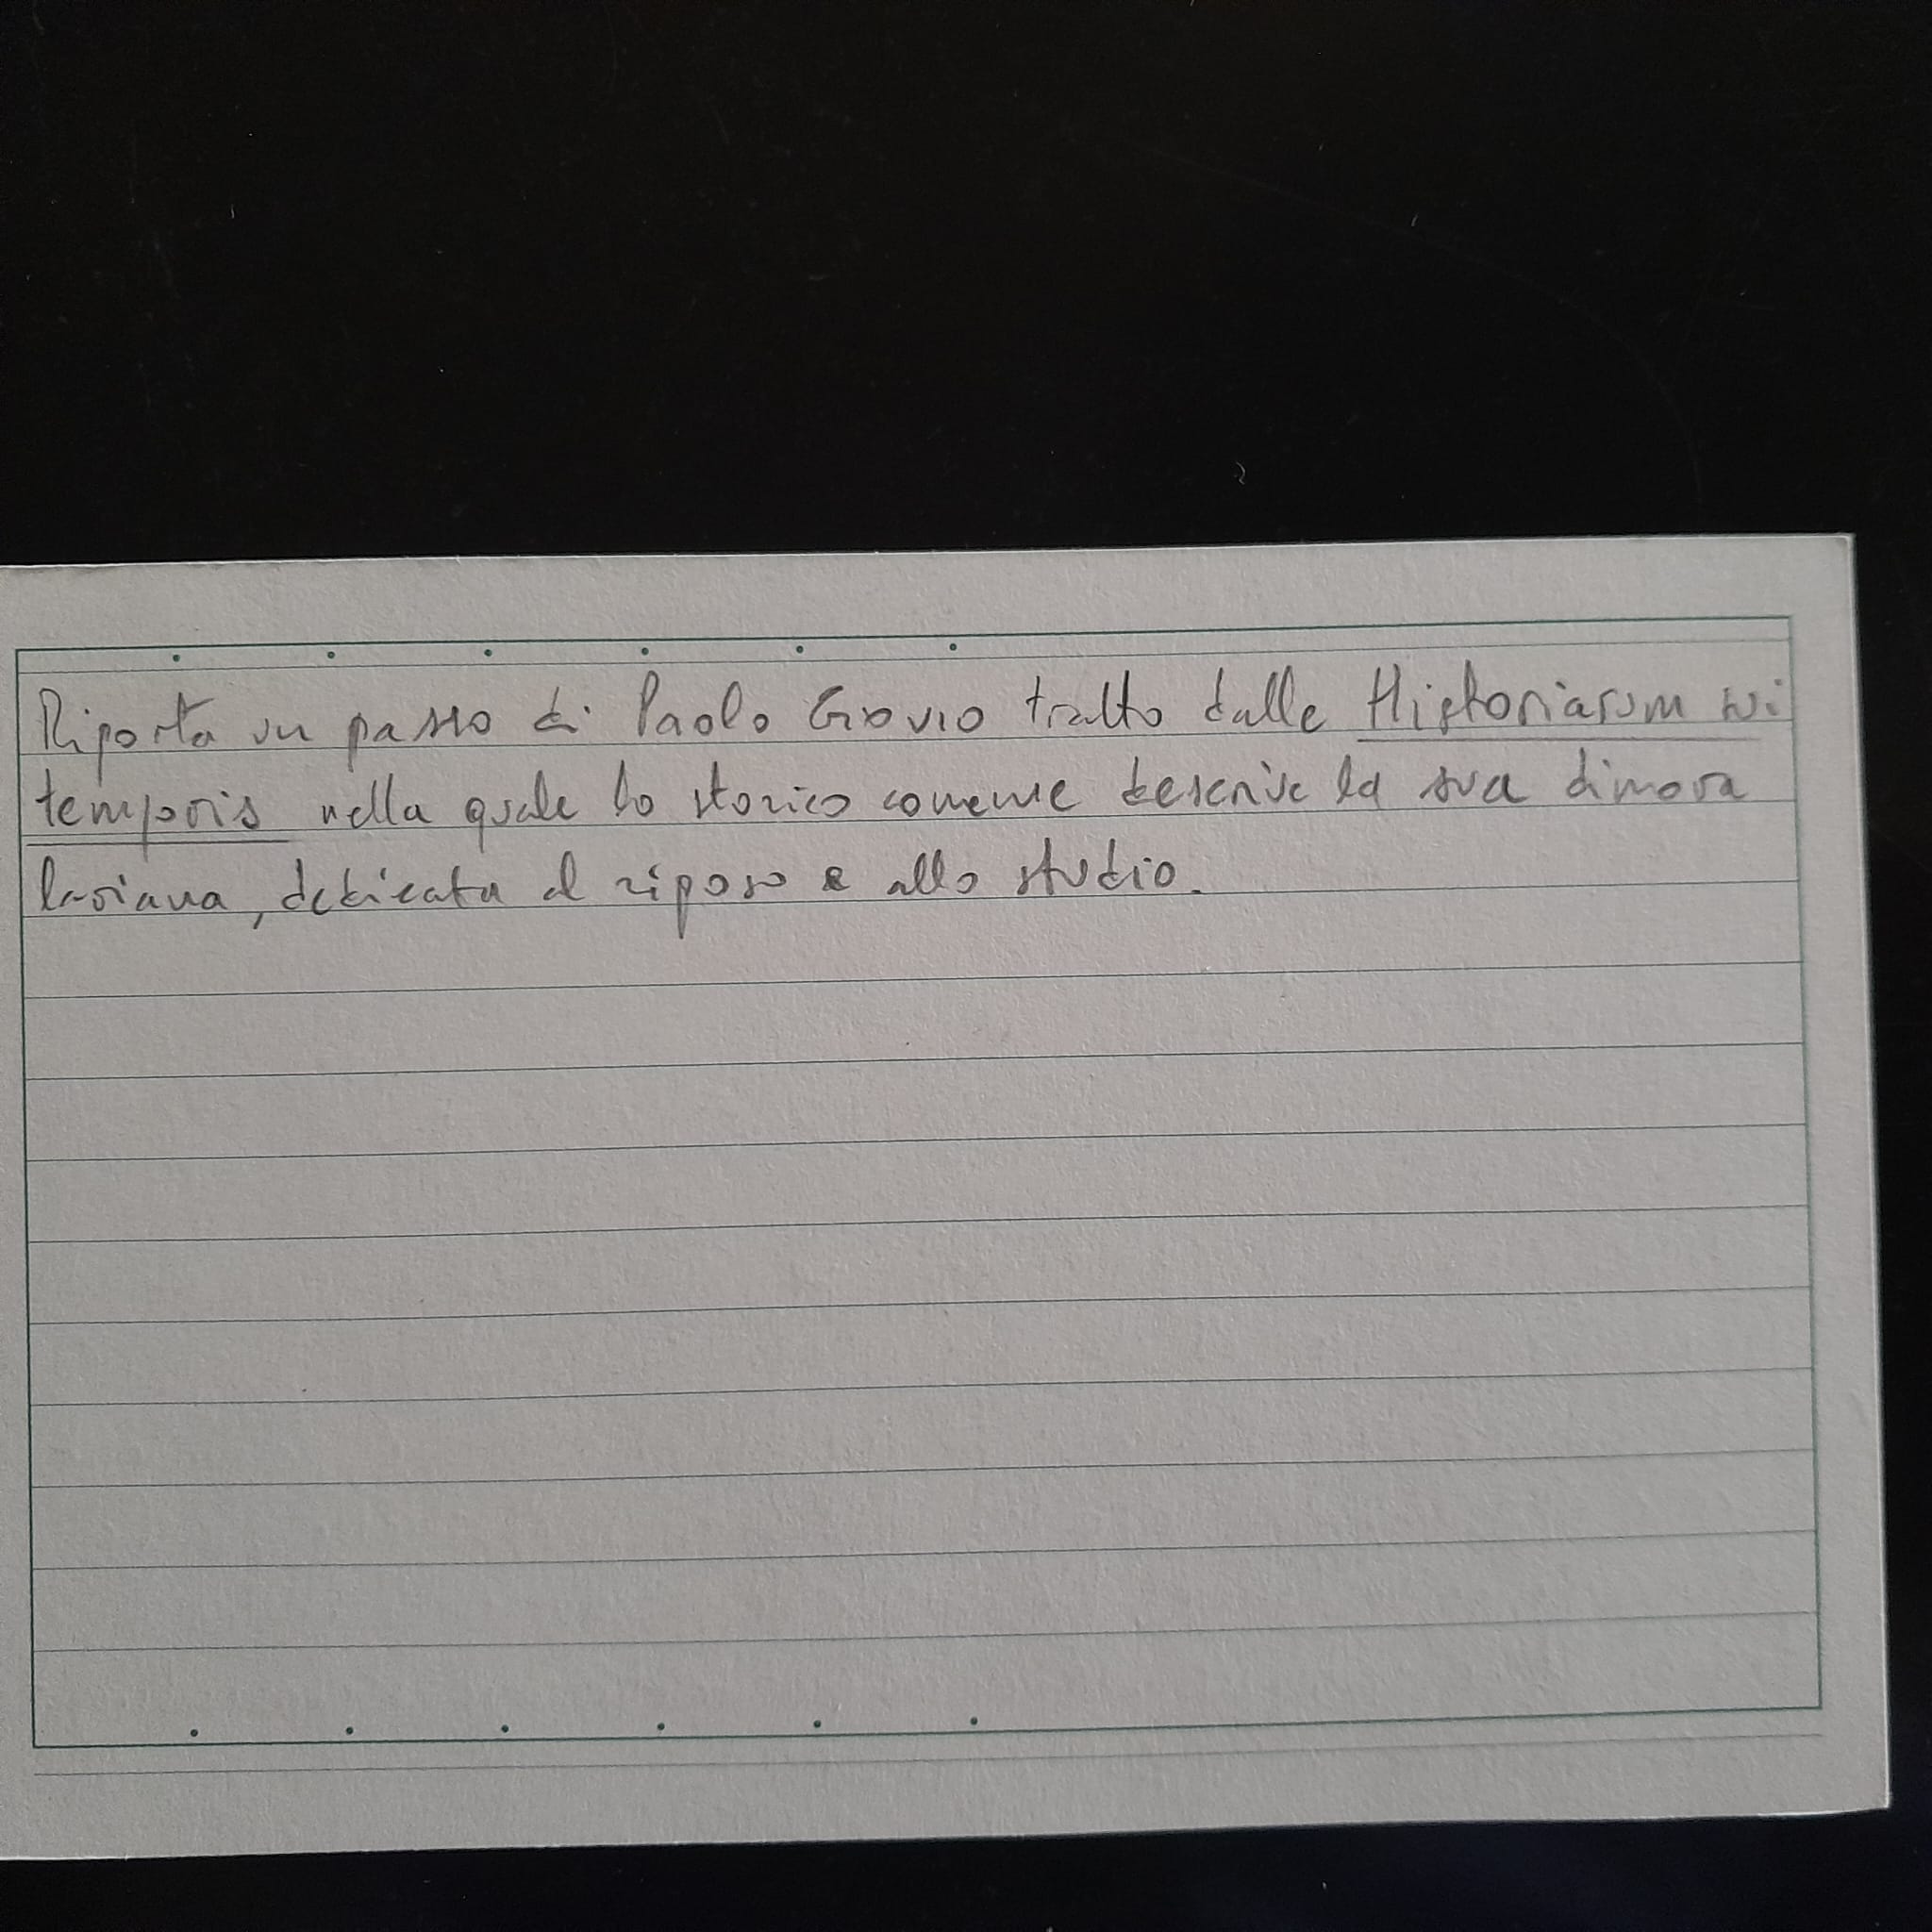 Riporta un passo di Paolo Giovio tratto dalle Historiarum sui
temporis nella quale lo storico comense descrive la sua dimora
lariana, dedicata al riposo e allo studio.